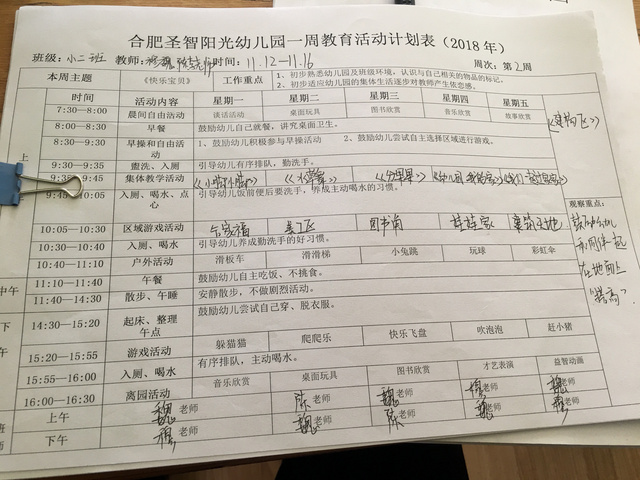 合肥圣智阳光幼儿园一周教育活动计划表（2018年）
班级：小二班 教师： 时间：11.12—11.16 周次：第2周
本周主题 《快乐宝贝》 工作重点 1、初步熟悉幼儿园及班级环境，认识与自己相关的物品的标记。
2、初步适应幼儿园的集体生活逐步对教师产生依恋感。
时间 活动内容 星期一 星期二 星期三 星期四 星期五
7:30—8:00 晨间自由活动 谈话活动 桌面玩具 图书欣赏 音乐欣赏 故事欣赏
8:00—8:30 早餐 鼓励幼儿自己就餐，讲究桌面卫生。
上 8:30—9:30 早操和自由活动 1、鼓励幼儿积极参与早操活动 2、鼓励幼儿尝试自主选择区域进行游戏。
9:30—9:35 盥洗、入厕 引导幼儿有序排队，勤洗手。
9:35—9:45 集体教学活动
9:45—10:05 入厕、喝水、点心 引导幼儿饭前便后要洗手，养成主动喝水的习惯。
观察重点：
10:05—10:30 区域游戏活动 美工区 图书角 娃娃家 建筑工地
10:30—10:40 入厕、喝水 引导幼儿养成勤洗手的好习惯。
10:40—11:10 户外活动 滑板车 滑滑梯 小兔跳 玩球 彩虹伞
中午 11:10—11:40 午餐 鼓励幼儿自主吃饭、不挑食。
11:40—14:30 散步、午睡 安静散步，不做剧烈活动。
下 14:30—15:20 起床、整理午点 鼓励幼儿尝试自己穿、脱衣服。
午 15:20—15:55 游戏活动 躲猫猫 爬爬乐 快乐飞盘 吹泡泡 赶小猪
15:55—16:00 入厕、喝水 有序排队，主动喝水。
16:00—16:30 离园活动 音乐欣赏 桌面玩具 图书欣赏 才艺表演 益智动画
班 上午 魏老师 陈老师 魏老师 穆老师 魏老师
师 下午 穆老师 魏老师 陈老师 魏老师 穆老师